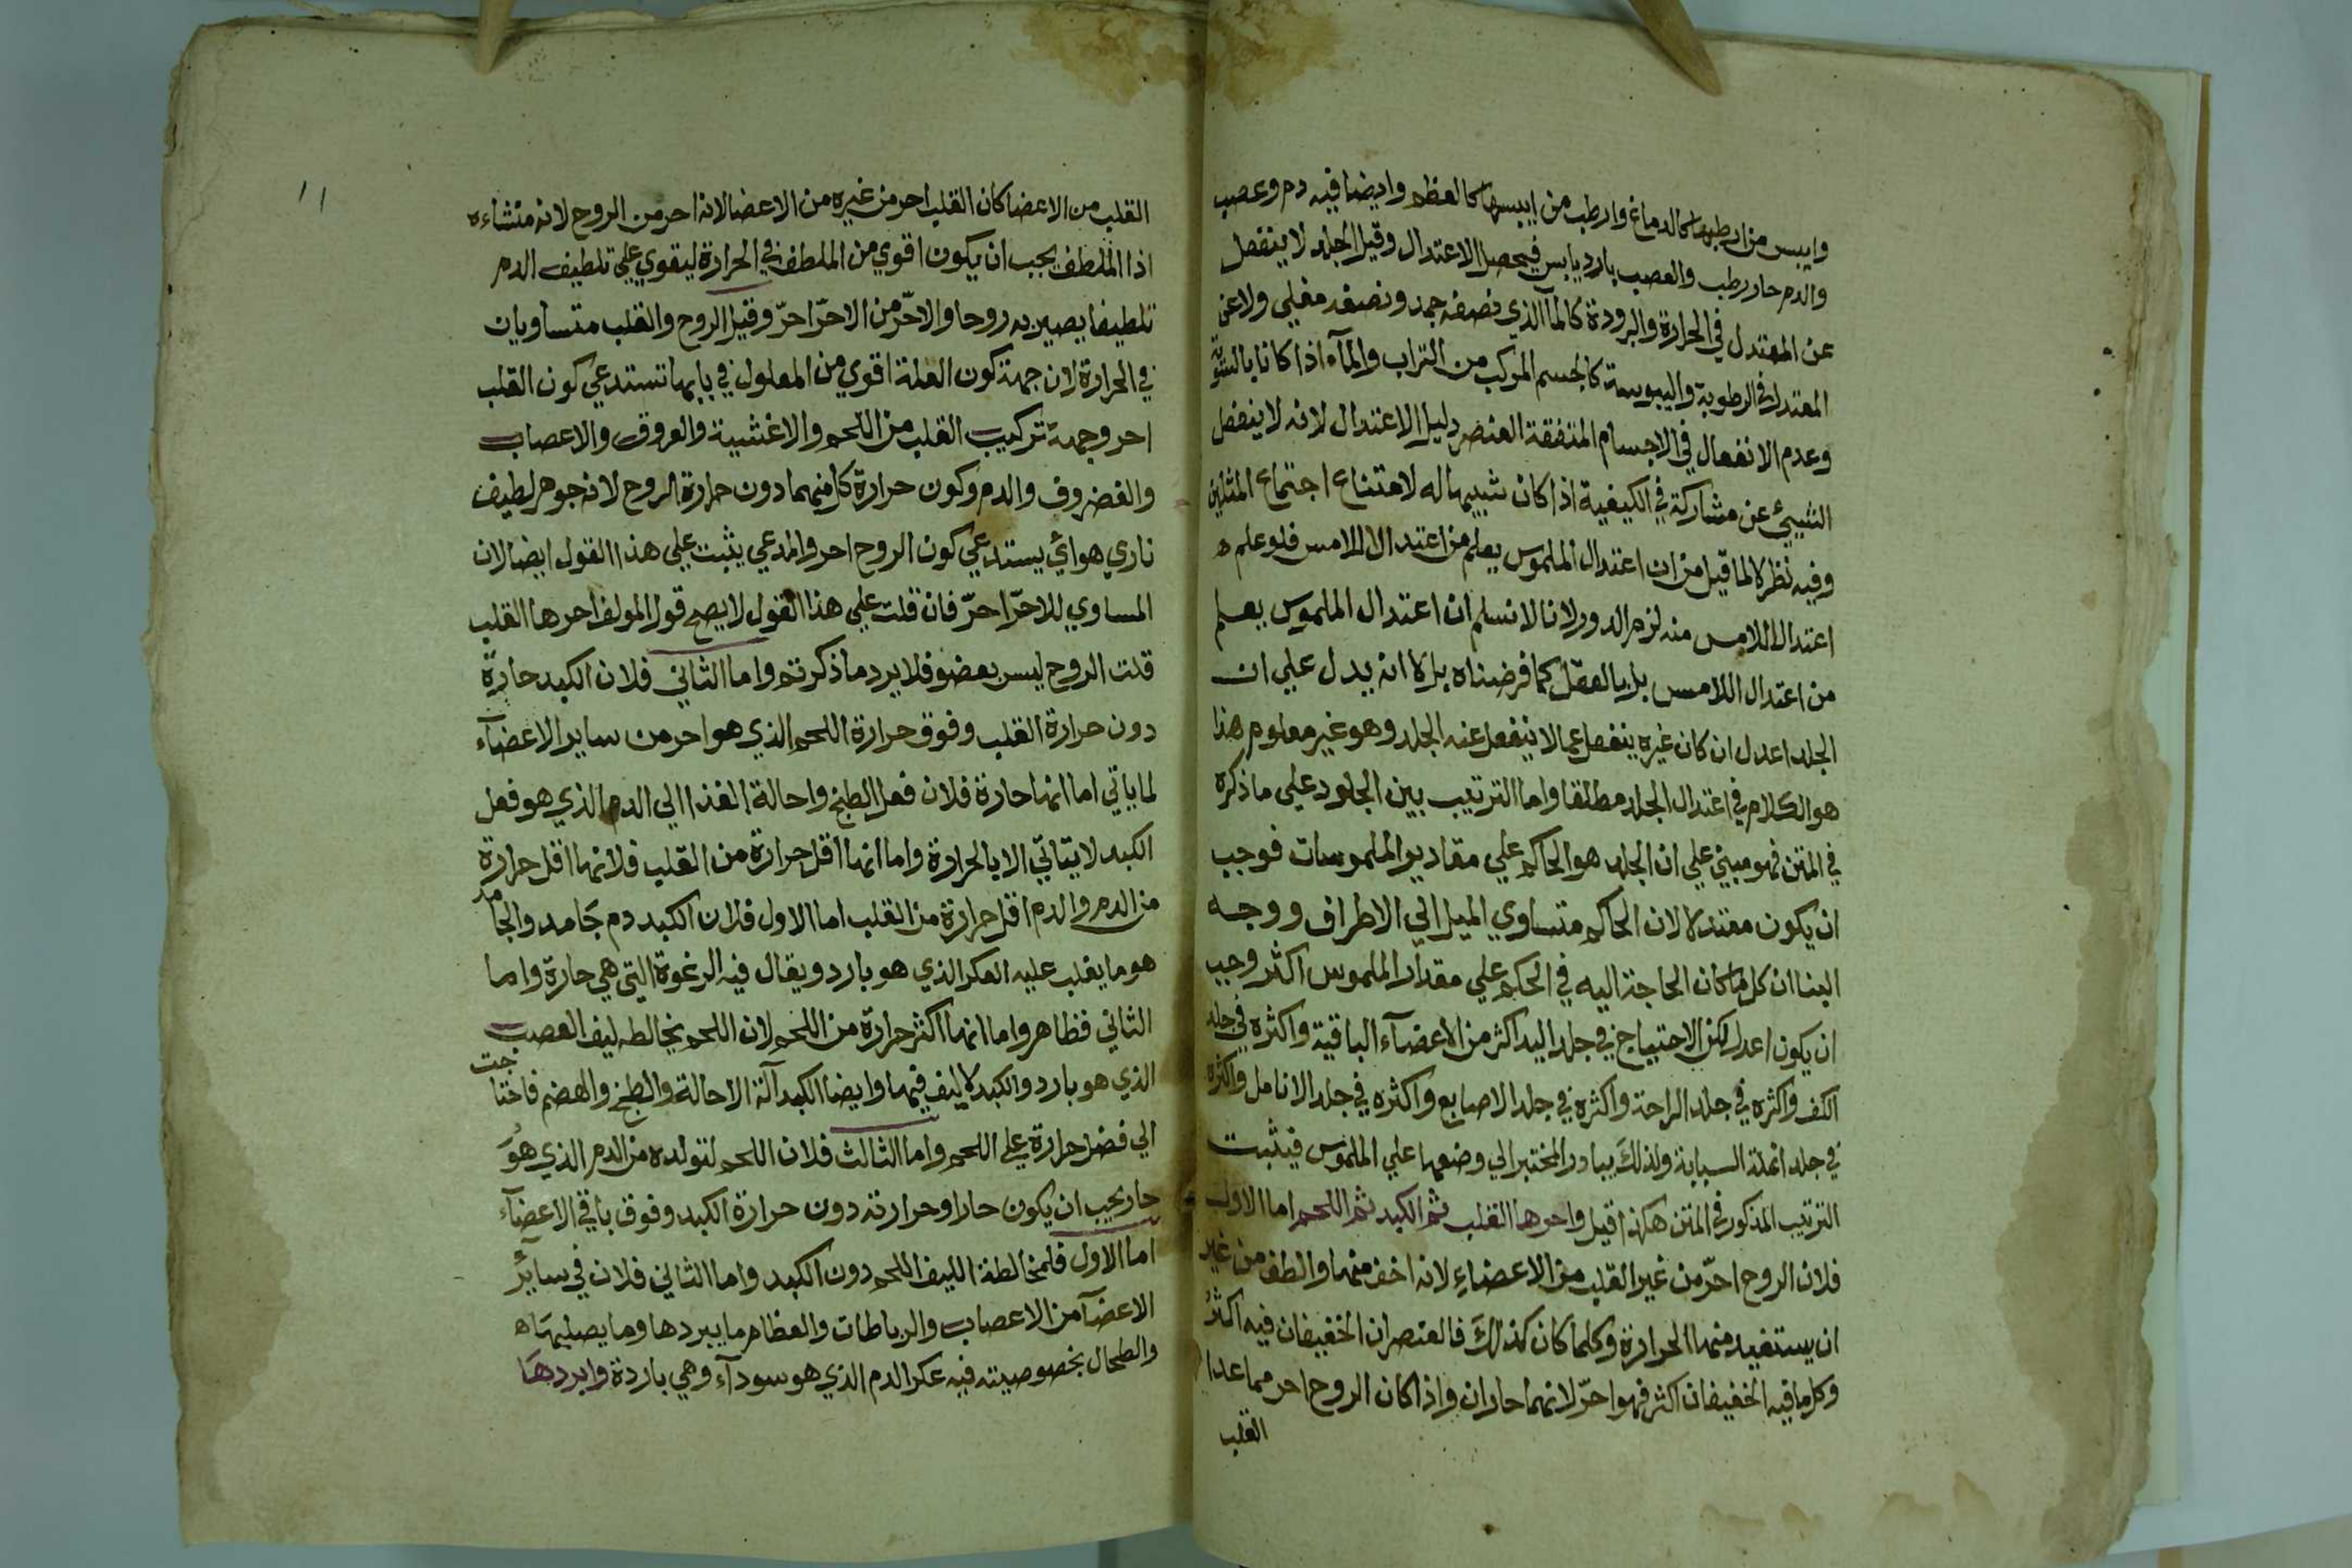 وايبس من ارطبها كالدماغ وارطب من ايبسها كالعظم وايضا فيه دم وعصب
والدم حار رطب والعصب بارد يابس فيحصل الاعتدال وقيل الجلد لا ينفعل
عن المعتدل في الحرارة والبرودة كالمآ الذي نصفه جمد ونصفه مغلي ولا عن
المعتدل في الرطوبة واليبوسة كالجسم المركب من التراب والمآء اذا كانا بالسوية
وعدم الانفعال في الاجسام المتفقة العنصر دليل الاعتدال لانه لا ينفعل
الشيئ عن مشاركه في الكيفية اذا كان شبيها له لامتناع اجتماع المثلين
وفيه نظر لا لما قيل من ان اعتدال الملموس يعلم من اعتدال اللامس فلو علم ه
اعتدال اللامس منه لزم الدور لانا لا نسلم ان اعتدال الملموس يعلم
من اعتدال اللامس بل بالعقل كما فرضناه بل لا انه يدل علي ان
الجلد اعدل ان كان غيره ينفعل عما لا ينفعل عنه الجلد وهو غير معلوم هذا
هو الكلام في اعتدال الجلد مطلقا واما الترتيب بين الجلود علي ما ذكره
في المتن فهو مبني علي ان الجلد هو الحاكم علي مقادير الملموسات فوجب
ان يكون معتدلا لان الحاكم متساوي الميل الي الاطراف ووجه
البنا ان كل ما كان الحاجة اليه في الحكم علي مقدار الملموس اكثر وجب
ان يكون اعدل لكن الاحتياج في جلد اليد اكثر من الاعضآء الباقية واكثره في جلد
الكف واكثره في جلد الراحة واكثره في جلد الاصابع واكثره في جلد الانامل واكثره
في جلد انملة السبابة ولذلك يبادر المختبر الي وضعها علي الملموس فيثبت
الترتيب المذكور في المتن هكذا قيل واحرها القلب ثم الكبد ثم اللحم اما الاول
فلان الروح احرّ من غير القلب من الاعضاء لانه اخف منها والطف من غير
ان يستفيد منها الحرارة وكلما كان كذلك فالعنصران الخفيفان فيه اكثر
وكل ما فيه الخفيفان اكثر فهو احرّ لانهما حاران واذا كان الروح احر مما عدا
القلب
١١
القلب من الاعضا كان القلب احر من غيره من الاعضا لانه احر من الروح لانه منشاءه
اذا الملطف يجب ان يكون اقوي من الملطف في الحرارة ليقوي علي تلطيف الدم
تلطيفا يصير به روحا والاحرّ من الاحرّ احرّ وقيل الروح والقلب متساويان
في الحرارة لان جهة كون العلة اقوي من المعلول في بابها تستدعي كون القلب
احر وجهة تركيب القلب من اللحم والاغشية والعروق والاعصاب
والغضروف والدم وكون حرارة كل منهما دون حرارة الروح لانه جوهر لطيف
ناري هوائي يستدعي كون الروح احر والمدعي يثبت علي هذا القول ايضا لان
المساوي للاحرّ احرّ فان قلت علي هذا القول لا يصح قول المولف احرها القلب
قلت الروح ليس بعضو فلا يرد ما ذكرتم واما الثاني فلان الكبد حارة
دون حرارة القلب وفوق حرارة اللحم الذي هو احر من ساير الاعضآء
لما ياتي اما انها حارة فلان فعل الطبخ واحالة الغذا الي الدم الذي هو فعل
الكبد لا يتاتي الا بالحرارة واما انها اقل حرارة من القلب فلانها اقل حرارة
من الدم والدم اقل حرارة من القلب اما الاول فلان الكبد دم جامد والجامد
هو ما يغلب عليه العكر الذي هو بارد ويقال فيه الرغوة التي هي حارة واما
الثاني فظاهر واما انها اكثر حرارة من اللحم لان اللحم يخالطه ليف العصب
الذي هو بارد والكبد لا ليف فيها وايضا الكبد آلة الاحالة والطبخ والهضم فاحتاجت
الي فضل حرارة علي اللحم واما الثالث فلان اللحم لتولده من الدم الذي هو
حار يجب ان يكون حارا وحرارته دون حرارة الكبد وفوق باقي الاعضآء
اما الاول فلمخالطة الليف اللحم دون الكبد واما الثاني فلان في سآير
الاعضآ من الاعصاب والرباطات والعظام ما يبردها وما يصلبها ه
والطحال بخصوصيته فيه عكر الدم الذي هو سودآء وهي باردة وابردها